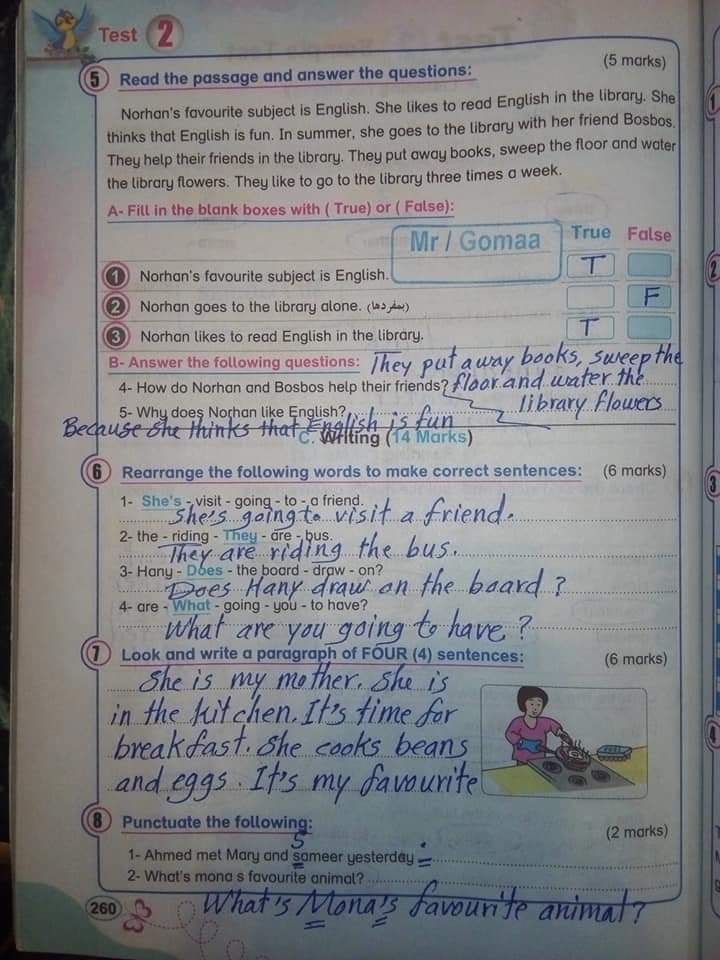 Test 2
5 Read the passage and answer the questions: (5 marks)
Norhan's favourite subject is English. She likes to read English in the library. She
thinks that English is fun. In summer, she goes to the library with her friend Bosbos.
They help their friends in the library. They put away books, sweep the floor and water
the library flowers. They like to go to the library three times a week.
A- Fill in the blank boxes with ( True) or ( False):
Mr / Gomaa True False
1 Norhan's favourite subject is English. T
2 Norhan goes to the library alone. (بمفردها) F
3 Norhan likes to read English in the library. T
B- Answer the following questions: They put away books, sweep the
4- How do Norhan and Bosbos help their friends? floor and water the
5- Why does Norhan like English? library flowers
Because she thinks that English is fun
C. Writing (14 Marks)
6 Rearrange the following words to make correct sentences: (6 marks)
1- She's - visit - going - to - a friend.
She's going to visit a friend.
2- the - riding - They - are - bus.
They are riding the bus.
3- Hany - Does - the board - draw - on?
Does Hany draw on the board ?
4- are - What - going - you - to have?
What are you going to have ?
7 Look and write a paragraph of FOUR (4) sentences: (6 marks)
She is my mother. She is
in the kitchen. It's time for
breakfast. She cooks beans
and eggs. It's my favourite
8 Punctuate the following: (2 marks)
S
1- Ahmed met Mary and sameer yesterday .
2- What's mona s favourite animal?
What's Mona's favourite animal?
260